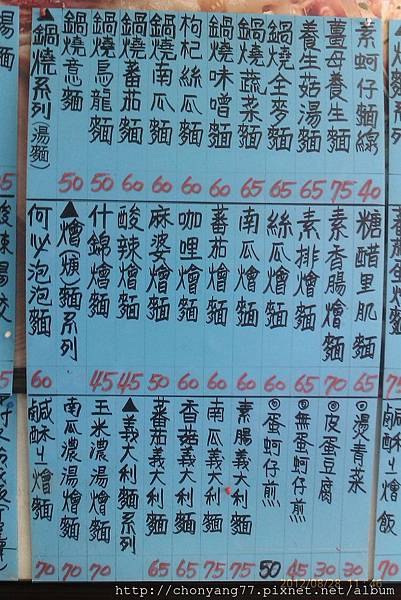 湯麵
▲鍋燒系列(湯麵)
鍋燒意麵 50
鍋燒烏龍麵 50
鍋燒蕃茄麵 60
鍋燒南瓜麵 60
枸杞絲瓜麵 60
鍋燒味噌麵 60
鍋燒蔬菜麵 65
鍋燒全麥麵 65
養生菇湯麵 65
薑母養生麵 75
素蚵仔麵線 40
酸辣湯餃
何必泡泡麵 60
▲燴(羹)麵系列
什錦燴麵 45
酸辣燴麵 45
麻婆燴麵 50
咖哩燴麵 60
蕃茄燴麵 60
南瓜燴麵 60
絲瓜燴麵 60
素排燴麵 65
素香腸燴麵 70
糖醋里肌麵 65
鹹酥ㄐ燴麵 70
南瓜濃湯燴麵 70
玉米濃湯燴麵 70
▲義大利麵系列
蕃茄義大利麵 65
香菇義大利麵 65
南瓜義大利麵 75
素腸義大利麵 75
◎蛋蚵仔煎 50
◎無蛋蚵仔煎 45
◎皮蛋豆腐 30
◎燙青菜 30
鹹酥ㄐ燴飯 70
2012/08/28 11:46
http://chonyang77.pixnet.net/album